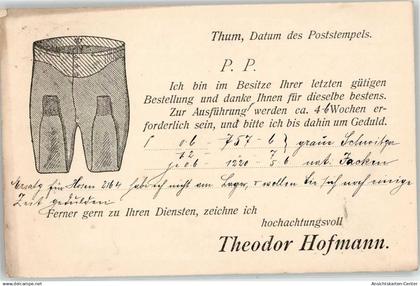 Thum, Datum des Poststempels.
P. P.
Ich bin im Besitze Ihrer letzten gütigen
Bestellung und danke Ihnen für dieselbe bestens.
Zur Ausführung werden ca. 4-6 Wochen er-
forderlich sein, und bitte ich bis dahin um Geduld.
Ersatz für Hosen 2164 hab ich nicht am Lager, wollen Sie sich noch einige
Zeit gedulden
Ferner gern zu Ihren Diensten, zeichne ich
hochachtungsvoll
Theodor Hofmann.
www.ansichtskarten-center.de
Ansichtskarten-Center